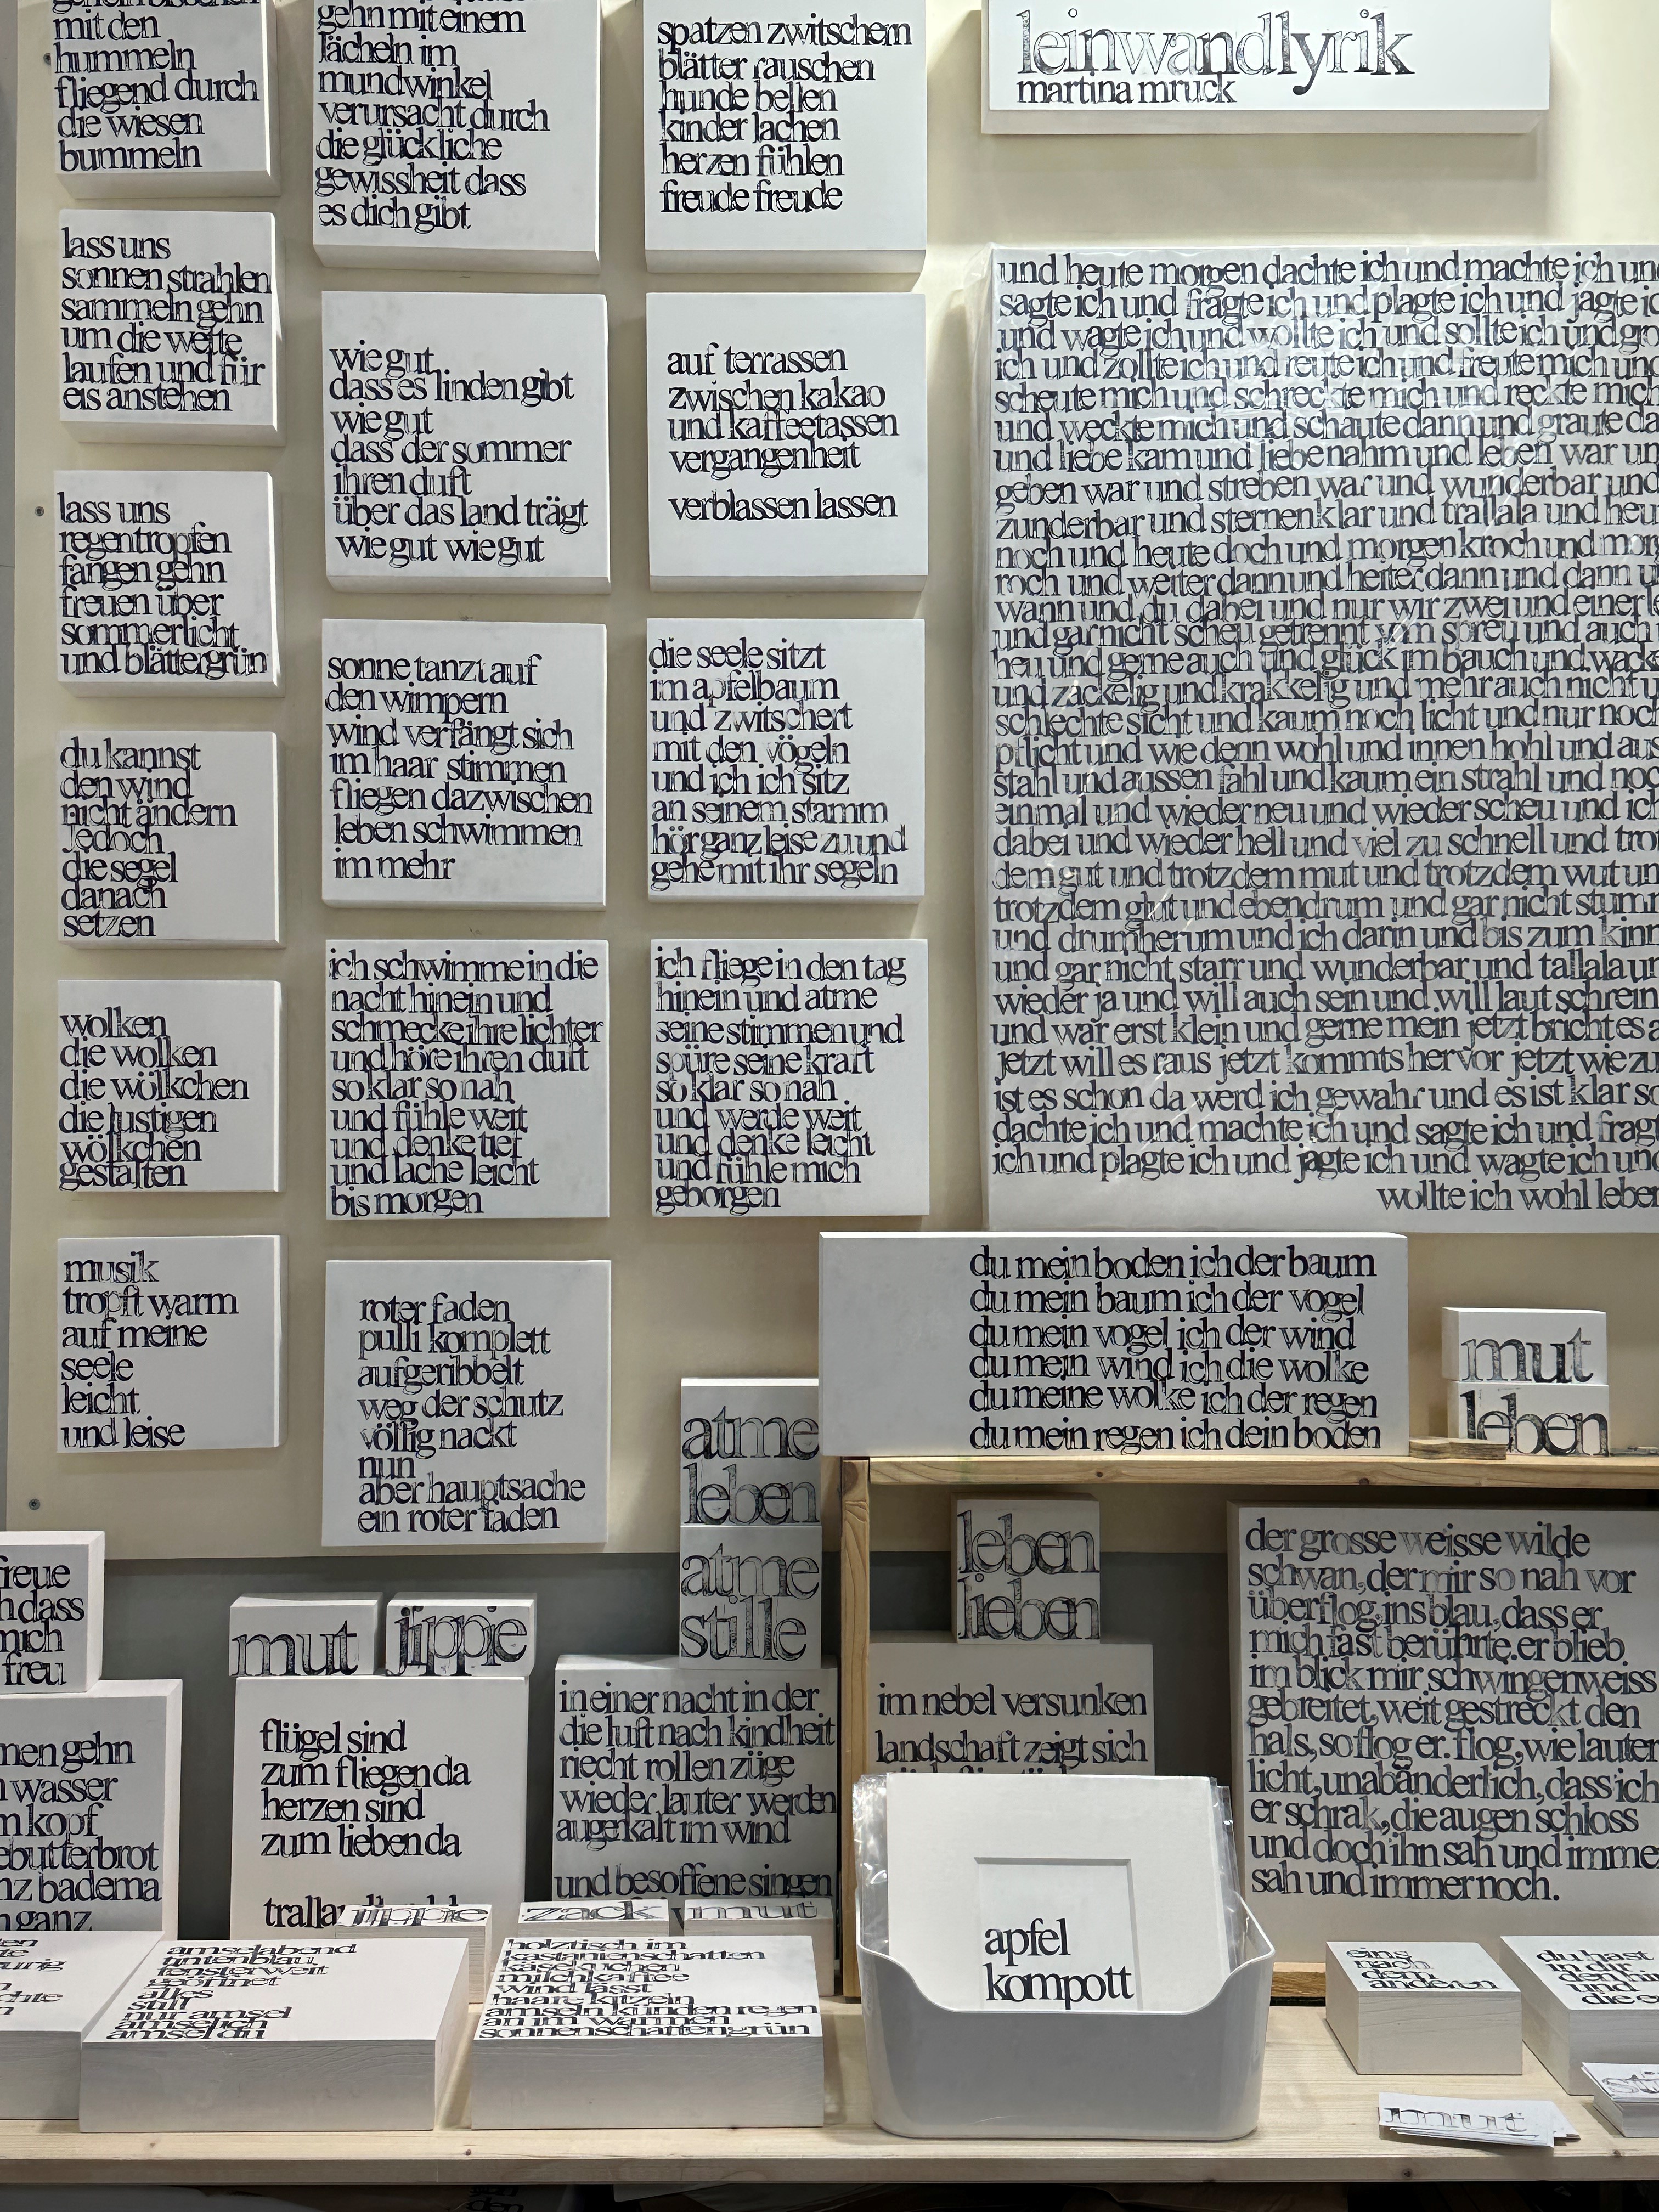 mit den
hummeln
fliegend durch
die wiesen
bummeln
lass uns
sonnen strahlen
sammeln gehn
um die wette
laufen und für
eis anstehen
lass uns
regentropfen
fangen gehn
freuen über
sommerlicht
und blättergrün
du kannst
den wind
nicht ändern
jedoch
die segel
danach
setzen
wolken
die wolken
die wölkchen
die lustigen
wölkchen
gestalten
musik
tropft warm
auf meine
seele
leicht
und leise
gehn mit einem
lächeln im
mundwinkel
verursacht durch
die glückliche
gewissheit dass
es dich gibt
wie gut
dass es linden gibt
wie gut
dass der sommer
ihren duft
über das land trägt
wie gut wie gut
sonne tanzt auf
den wimpern
wind verfängt sich
im haar stimmen
fliegen dazwischen
leben schwimmen
im mehr
ich schwimme in die
nacht hinein und
schmecke ihre lichter
und höre ihren duft
so klar so nah
und fühle weit
und denke tief
und lache leicht
bis morgen
roter faden
pulli komplett
aufgeribbelt
weg der schutz
völlig nackt
nun
aber hauptsache
ein roter faden
spatzen zwitschern
blätter rauschen
hunde bellen
kinder lachen
herzen fühlen
freude freude
auf terrassen
zwischen kakao
und kaffeetassen
vergangenheit
verblassen lassen
die seele sitzt
im apfelbaum
und zwitschert
mit den vögeln
und ich ich sitz
an seinem stamm
hör ganz leise zu und
gehe mit ihr segeln
ich fliege in den tag
hinein und atme
seine stimmen und
spüre seine kraft
so klar so nah
und werde weit
und denke leicht
und fühle mich
geborgen
leinwandlyrik
martina mruck
und heute morgen dachte ich und machte ich und
sagte ich und fragte ich und plagte ich und jagte ic
und wagte ich und wollte ich und sollte ich und gro
ich und zollte ich und reute ich und freute mich und
scheute mich und schreckte mich und reckte mich
und weckte mich und schaute dann und graute da
und liebe kam und liebe nahm und leben war un
geben war und streben war und wunderbar und
zunderbar und sternenklar und trallala und heu
noch und heute doch und morgen kroch und morg
roch und weiter dann und heiter dann und dann u
wann und du dabei und nur wir zwei und einerle
und gar nicht scheu getrennt vom spreu und auch
heu und gerne auch und glück im bauch und wack
und zackelig und krakkelig und mehr auch nicht u
schlechte sicht und kaum noch licht und nur noch
pflicht und wie denn wohl und innen hohl und aus
stahl und aussen fahl und kaum ein strahl und noc
einmal und wieder neu und wieder scheu und ich
dabei und wieder hell und viel zu schnell und trot
dem gut und trotzdem mut und trotzdem wut un
trotzdem glut und ebendrum und gar nicht stumm
und drumherum und ich darin und bis zum kinn
und gar nicht starr und wunderbar und tallala un
wieder ja und will auch sein und will laut schrein
und war erst klein und gerne mein jetzt bricht es a
jetzt will es raus jetzt kommts hervor jetzt wie zu
ist es schon da werd ich gewahr und es ist klar so
dachte ich und machte ich und sagte ich und fragt
ich und plagte ich und jagte ich und wagte ich und
wollte ich wohl leben
du mein boden ich der baum
du mein baum ich der vogel
du mein vogel ich der wind
du mein wind ich die wolke
du meine wolke ich der regen
du mein regen ich dein boden
mut
leben
atme
leben
atme
stille
leben
lieben
freue
dass
mich
freu
mut
jippie
men gehn
wasser
kopf
ebutterbrot
nz badema
ganz
flügel sind
zum fliegen da
herzen sind
zum lieben da
in einer nacht in der
die luft nach kindheit
riecht rollen züge
wieder lauter werden
auge kalt im wind
und besoffene singen
im nebel versunken
landschaft zeigt sich
der grosse weisse wilde
schwan, der mir so nah vor
überflog, ins blau, dass er
mich fast berührte. er blieb
im blick mir schwingenweiss
gebreitet, weit gestreckt den
hals, so flog er. flog, wie lauter
licht, unabänderlich, dass ich
er schrak, die augen schloss
und doch ihn sah und imme
sah und immer noch.
jippie
zack
mut
amselabend
tintenblau
fenster weit
geöffnet
alles
still
nur amsel
amselich
amsel du
holztisch im
kastanienschatten
käsekuchen
milchkaffee
wind lässt
haare kitzeln
amseln künden regen
an im warmen
sonnenschattengrün
apfel
kompott
eins
nach
dem
anderen
du hast
in dir
den hi
und
die e
mut